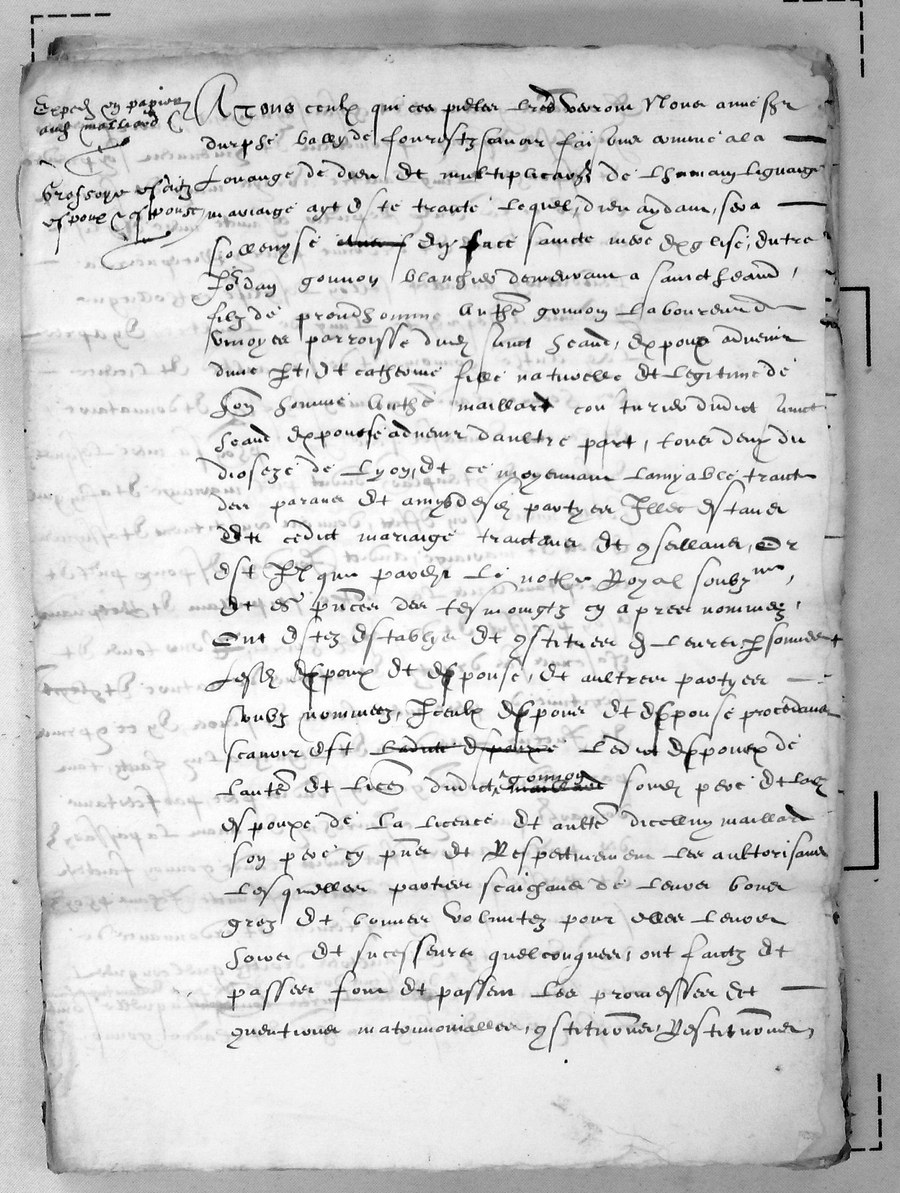 Exped en papier
aud mailliard
Grossoye esditz
espoux & espouse
A Tous ceulx qui ces pntes lres verront Nous anne sgr
durphe bally de fourestz scavoir fai que comme a la
Louange de dieu et multiplicaon de Lhumain lignaige
mariaige ayt este traicte Lequel, dieu aydant, sera
sollenyse en face saincte mere esglise, entre
Jordan gonnon blanchier demeurant a sainct heand,
filz de proudhomme Anthe gonnon Laboureur de
parroisse dud sainct heand, expoux advenir
dune pt, Et catherine fille naturelle Et Legitime de
hon homme Anthe maillard costurier dudict sainct
heand expouse advenir daultre part, tous deux du
dioseze de Lyon, Et ce moyennant Lamyable traicte
des parans Et amys desd partyes Illec estans
Et cedict mariaige traictans Et conseillans, Or
Est Il que pardevt Le notre Royal soubzne,
Et es pnces des tesmoingtz cy apres nommez,
Ont estez establys Et constitues en Leurs personnes
Lesd expoux Et expouse, Et aultres partyes
soubz nommees, Iceulx expoux Et expouse procedans
scavoir est ladicte espouse Ledict expoux de
Laute Et Lice dudict gonnon sond pere Et lad
espouxe de La licence Et aulte dicelluy maillard
son pere cy pnt Et Respectivement Les aultorisans
Lesquelles parties scaichans de Leurs bons
grez Et bonnes volontez pour elles Leurs
hoirs Et successeurs quelconques, ont faictz Et
passes font Et passent Les promesses Et
conventions matrimonialles, constituons, Restituons,